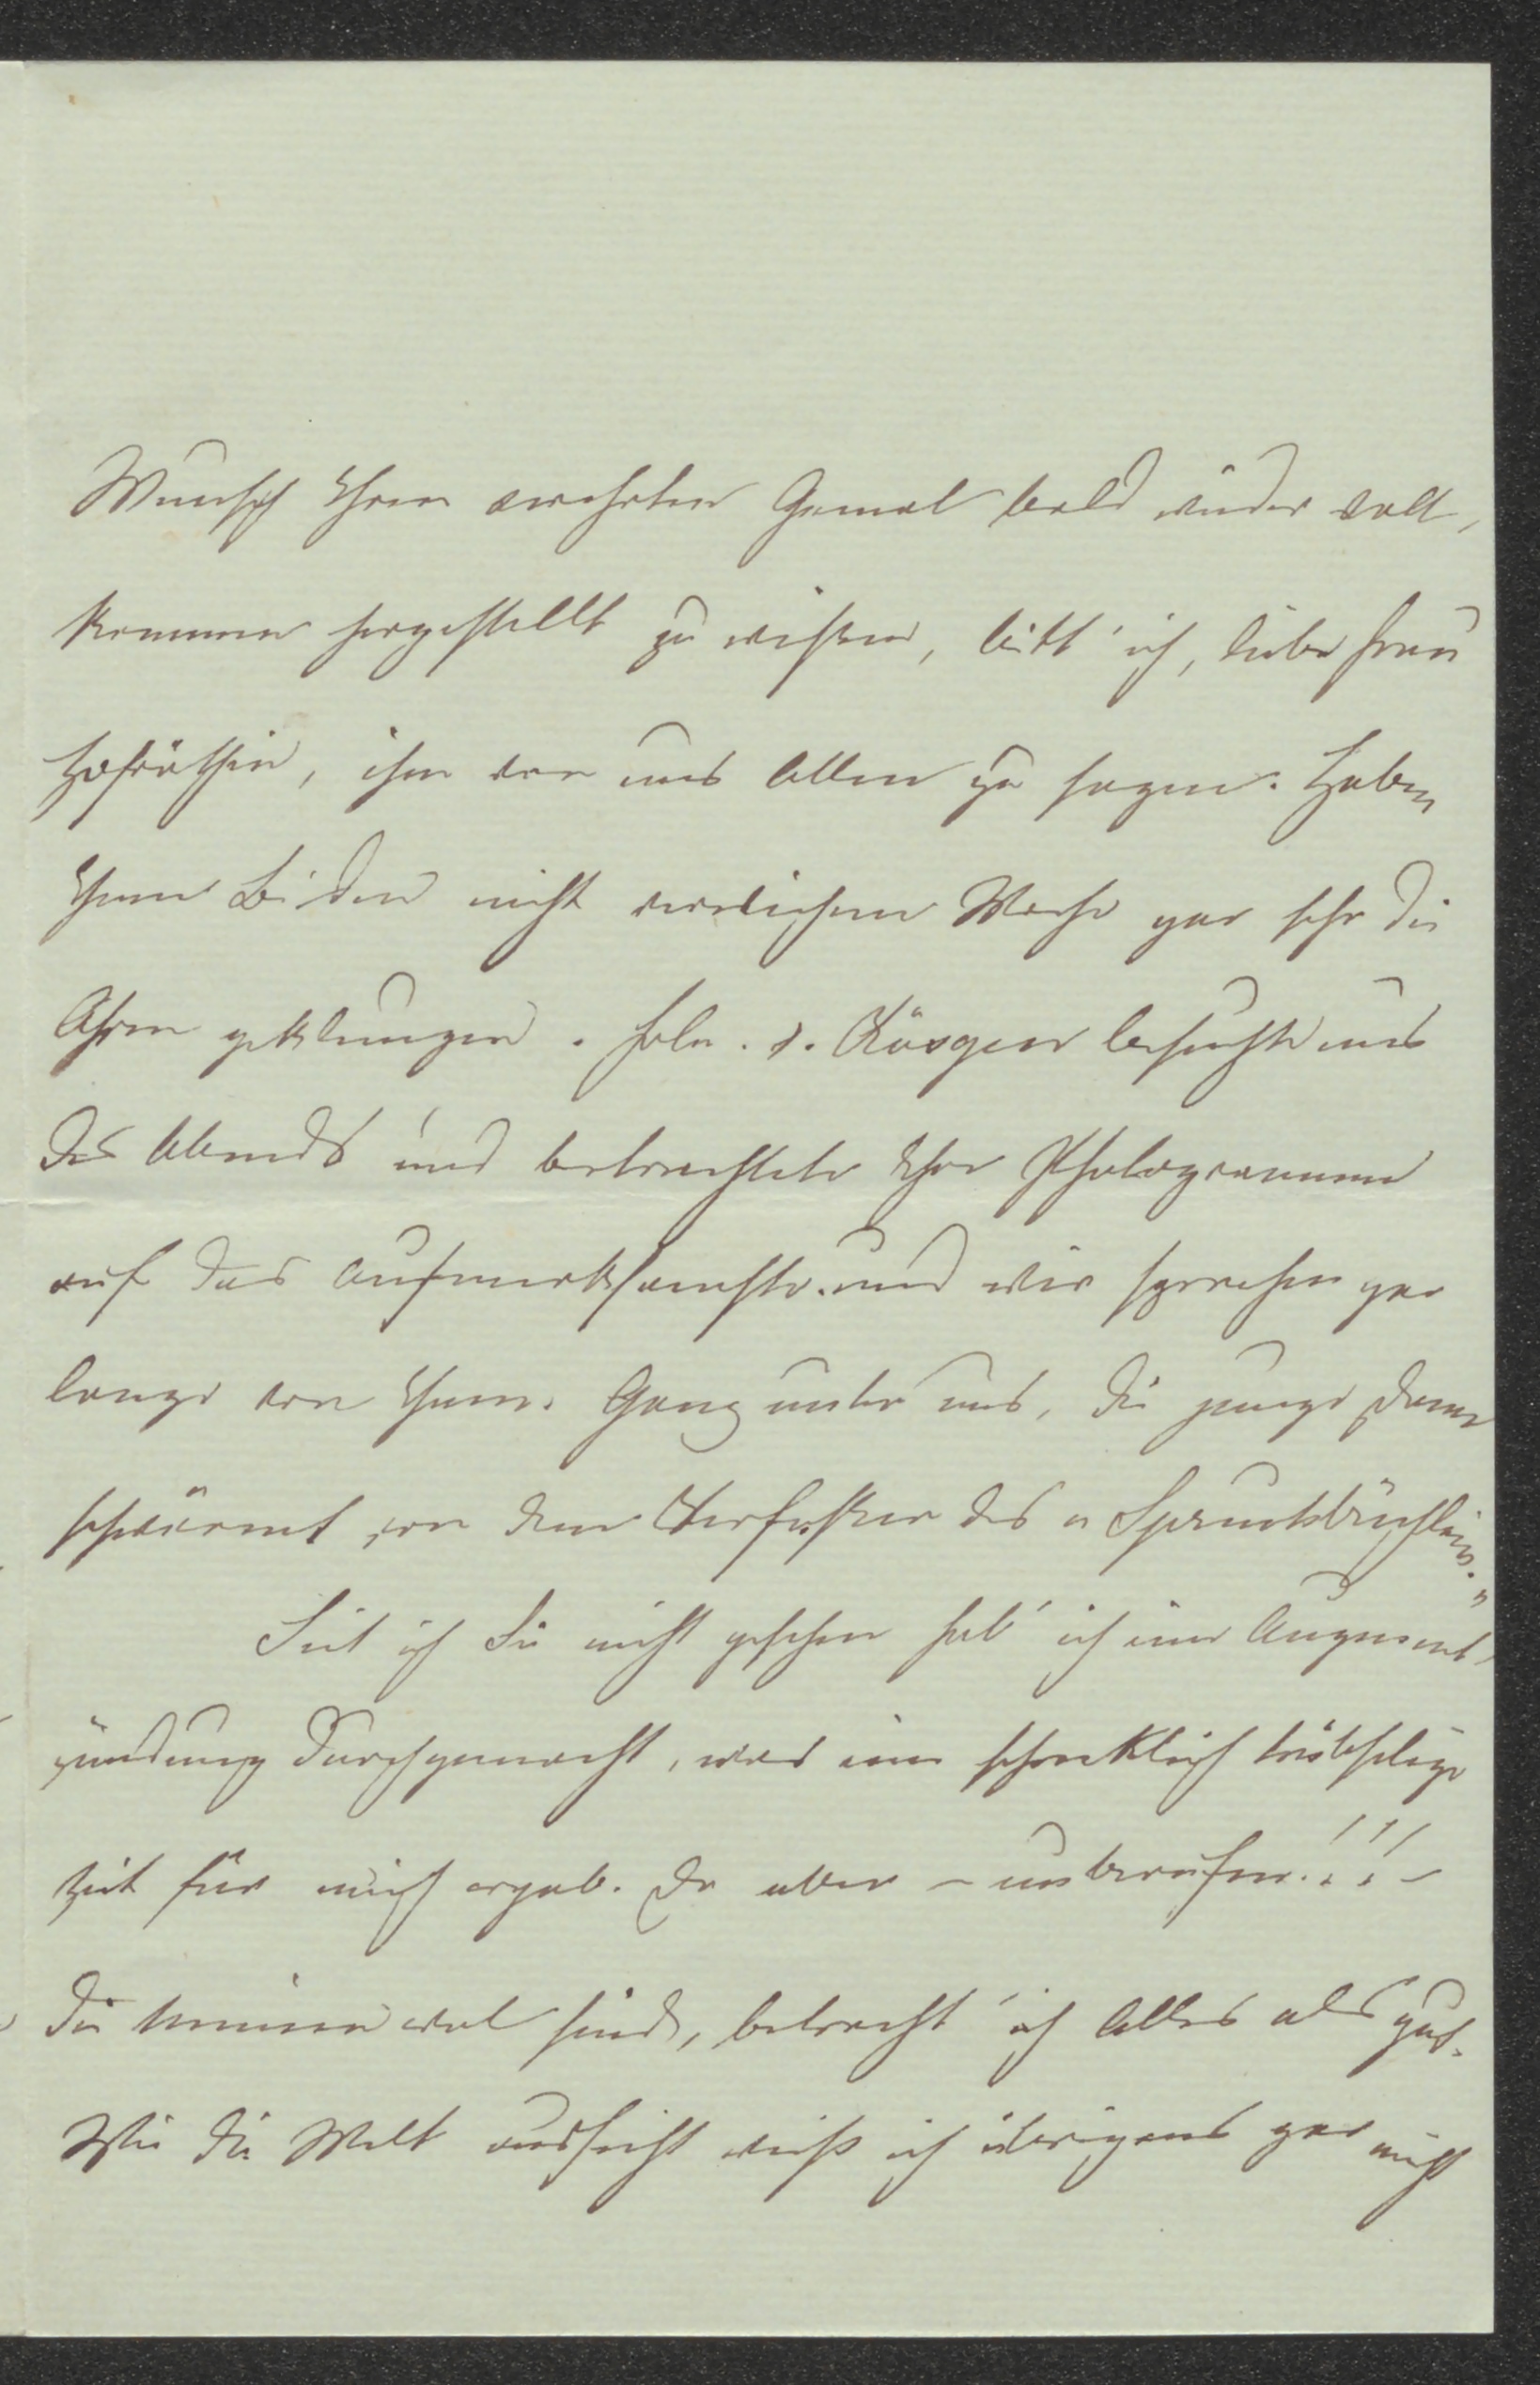 Wunsch Ihren verehrten Gemal bald wieder voll,
kommen hergestellt zu wissen, bitt' ich, liebe Frau
Hofräthin, ihm von uns Allen zu sagen. Haben
Ihnen Beiden nicht verwichene Woche gar sehr die
Ohren geklungen. Frln. v. besuchte uns
des Abends und betrachtete Ihre Photogramme
auf das Aufmerksamste. und wir sprachen gar
lange von Ihnen. Ganz unter uns, die junge Dame
schwärmt von dem Verfasser des „Spruchbüchleins."
Seit ich Sie nicht gesehen hab' ich eine Augenent,
zündung durchgemacht, was eine schrecklich trübselige
Zeit für mich ergab. Da aber – unberufen!!! –
die Meinen wol sind, betracht' ich Alles als gut.
Wie die Welt aussieht weiß ich übrigens gar nicht